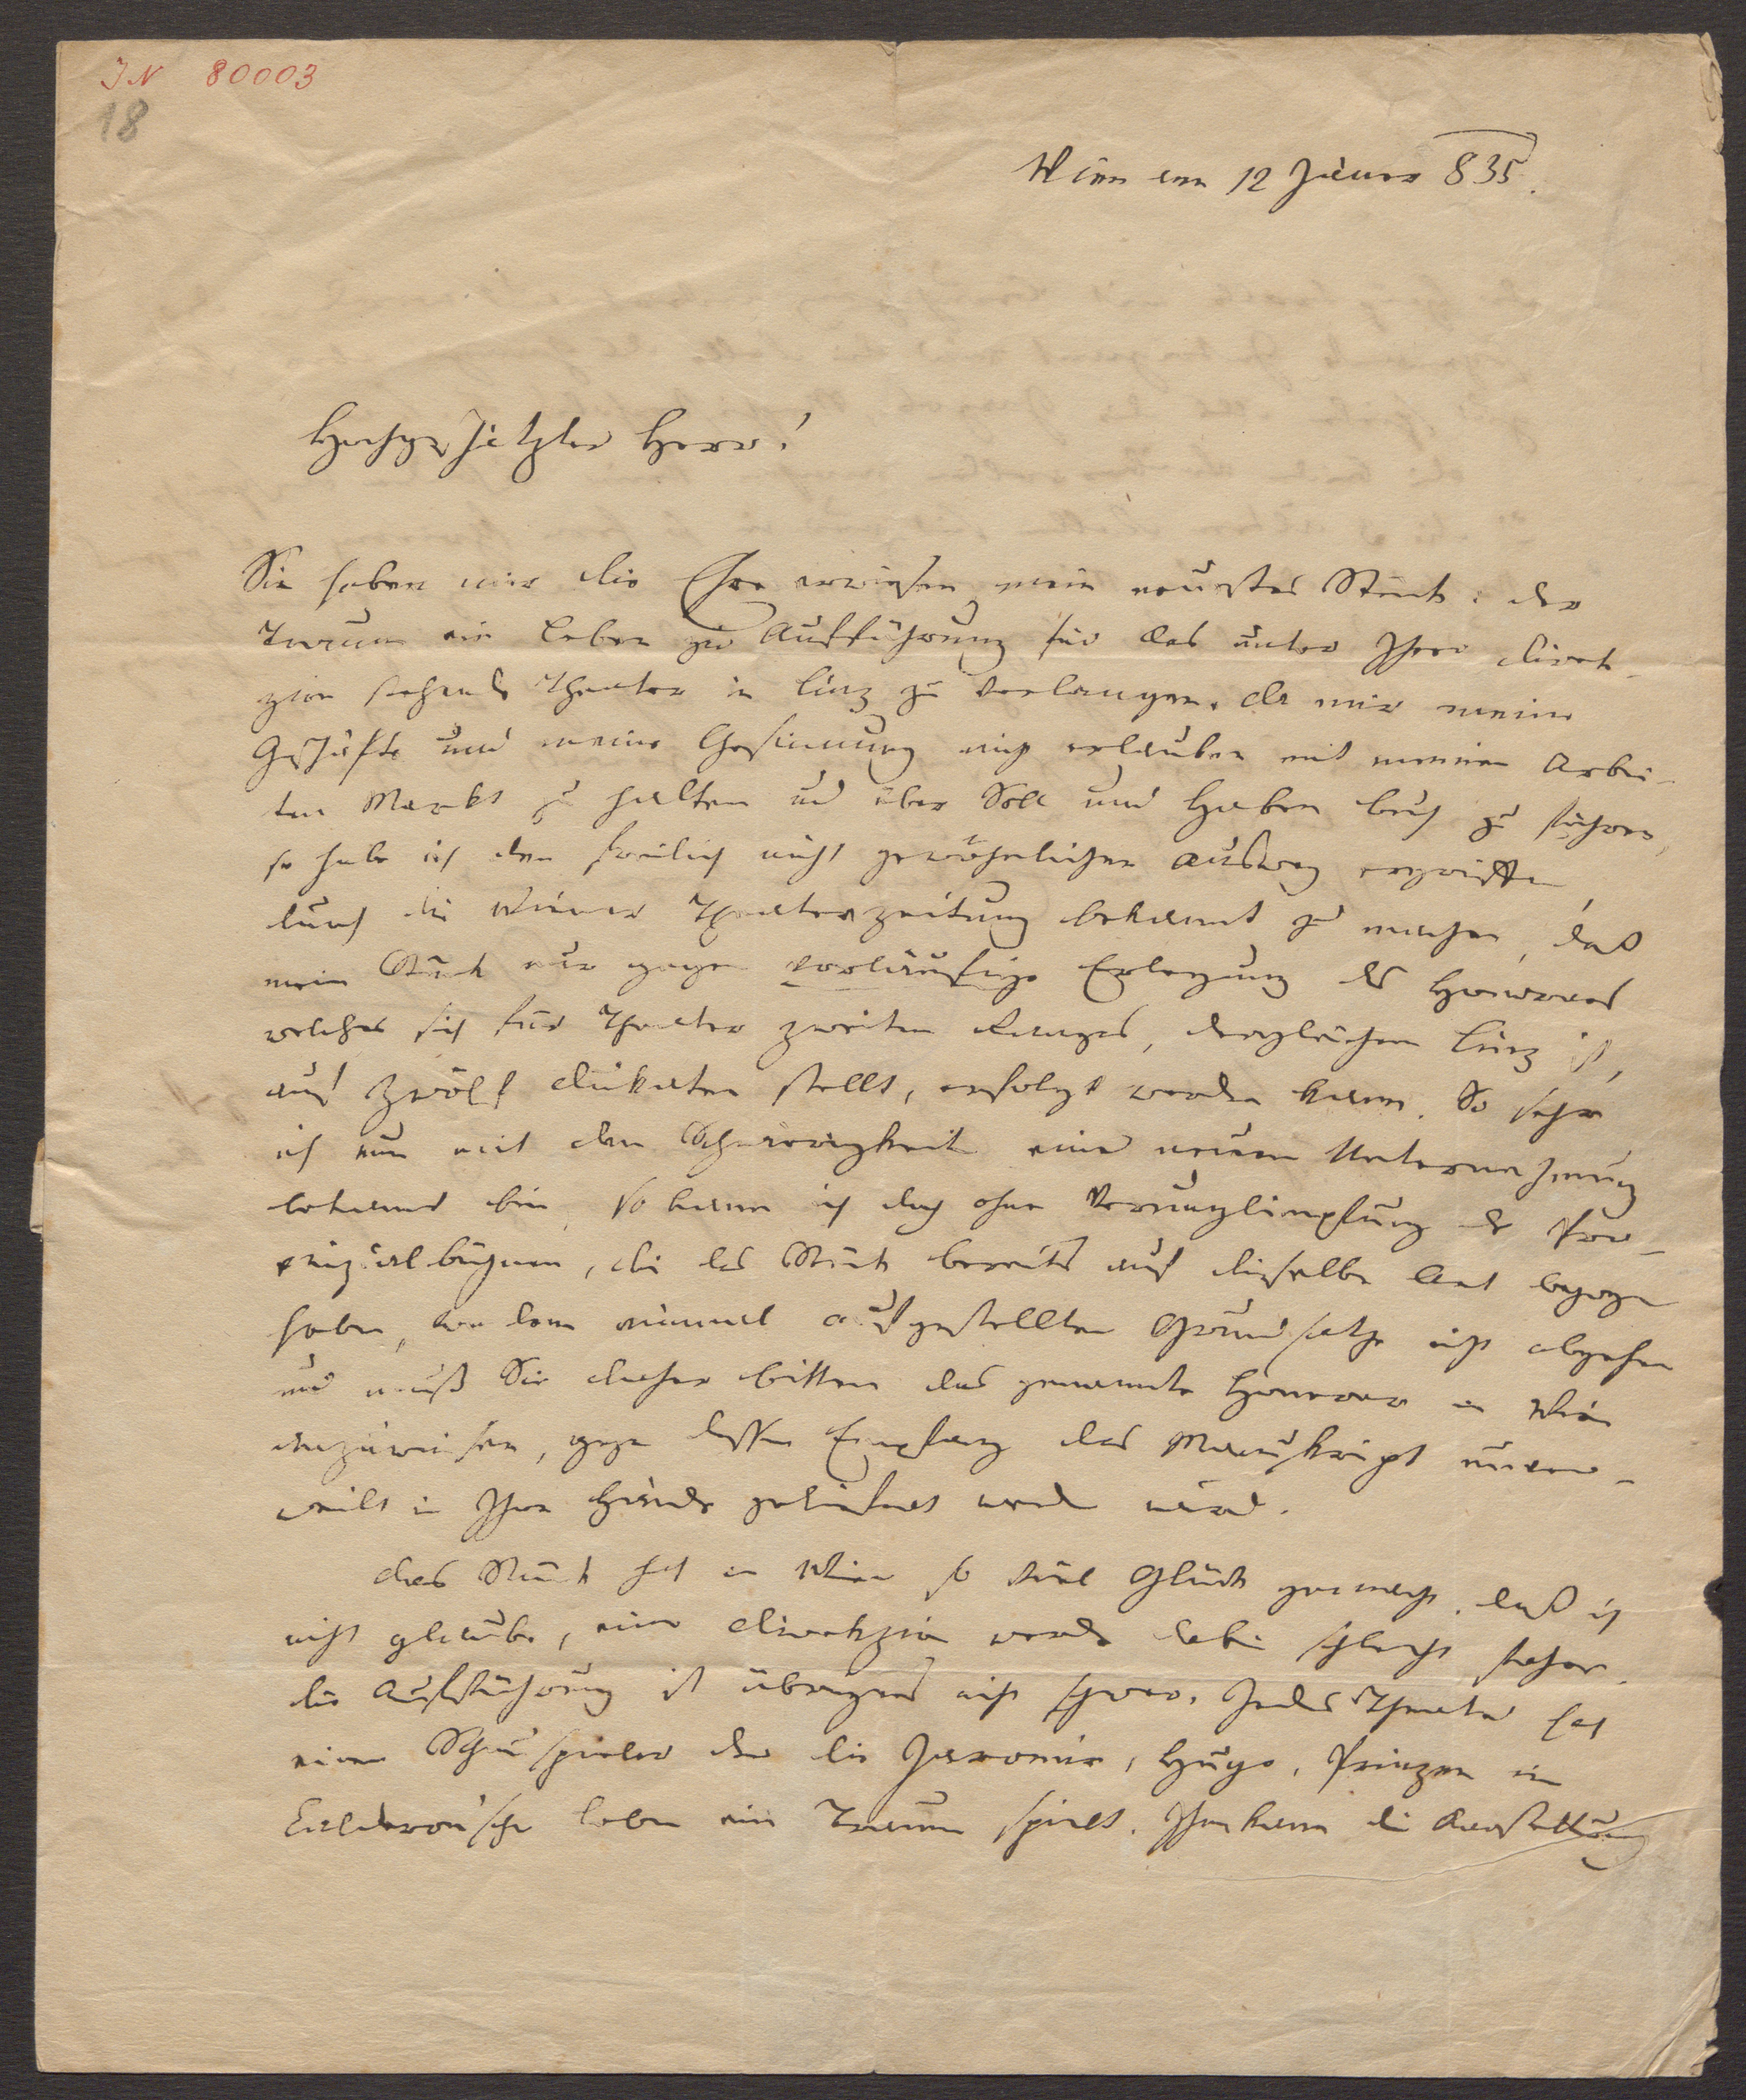 IN 80003
18
Wien am 12 Jäner 835.
Hochgeschätzter Herr!
Sie haben mir die Ehre erwiesen mein neustes Stück: der
Traum ein Leben zur Aufführung für das unter Ihrer Direk-
zion stehende Theater in Linz zu verlangen. Da mir meine
Geschäfte und meine Gesinnung nicht erlauben mit meinen Arbei-
ten Markt zu halten und über Soll und Haben buch zu führen,
so habe ich den freilich nicht gewöhnlichen Ausweg ergriffen
durch die Wiener Theaterzeitung bekannt zu machen, daß
mein Stück nur gegen vorläufige Erlegung des Honorars
welches sich für Theater zweiten Ranges, dergleichen Linz ist,
auf zwölf Dukaten stellt, erfolgt werden kann. So sehr
ich nun mit den Schwierigkeiten einer neuen Unternehmung
bekannt bin, so kann ich doch ohne Verunglimpfung der Pro-
vinzialbühnen, die das Stück bereits auf dieselbe Art bezogen
haben, von dem einmal aufgestellten Grundsatze nicht abgehen
und muß Sie daher bitten das genannte Honorar in Wien
anzuweisen, gegen dessen Empfang das Manuskript unver-
weilt in Ihre Hände geliefert werden wird.
Das Stück hat in Wien so viel Glück gemacht, daß ich
nicht glaube, eine Direkzion werde dabei schlecht stehen.
die Aufführung ist übrigens nicht schwer. Jedes Theater hat
einen Schauspieler der die Jaromir, Hugo, Prinzen im
Calderon'schen Leben ein Traum spielt. Ihm kann die Darstellung